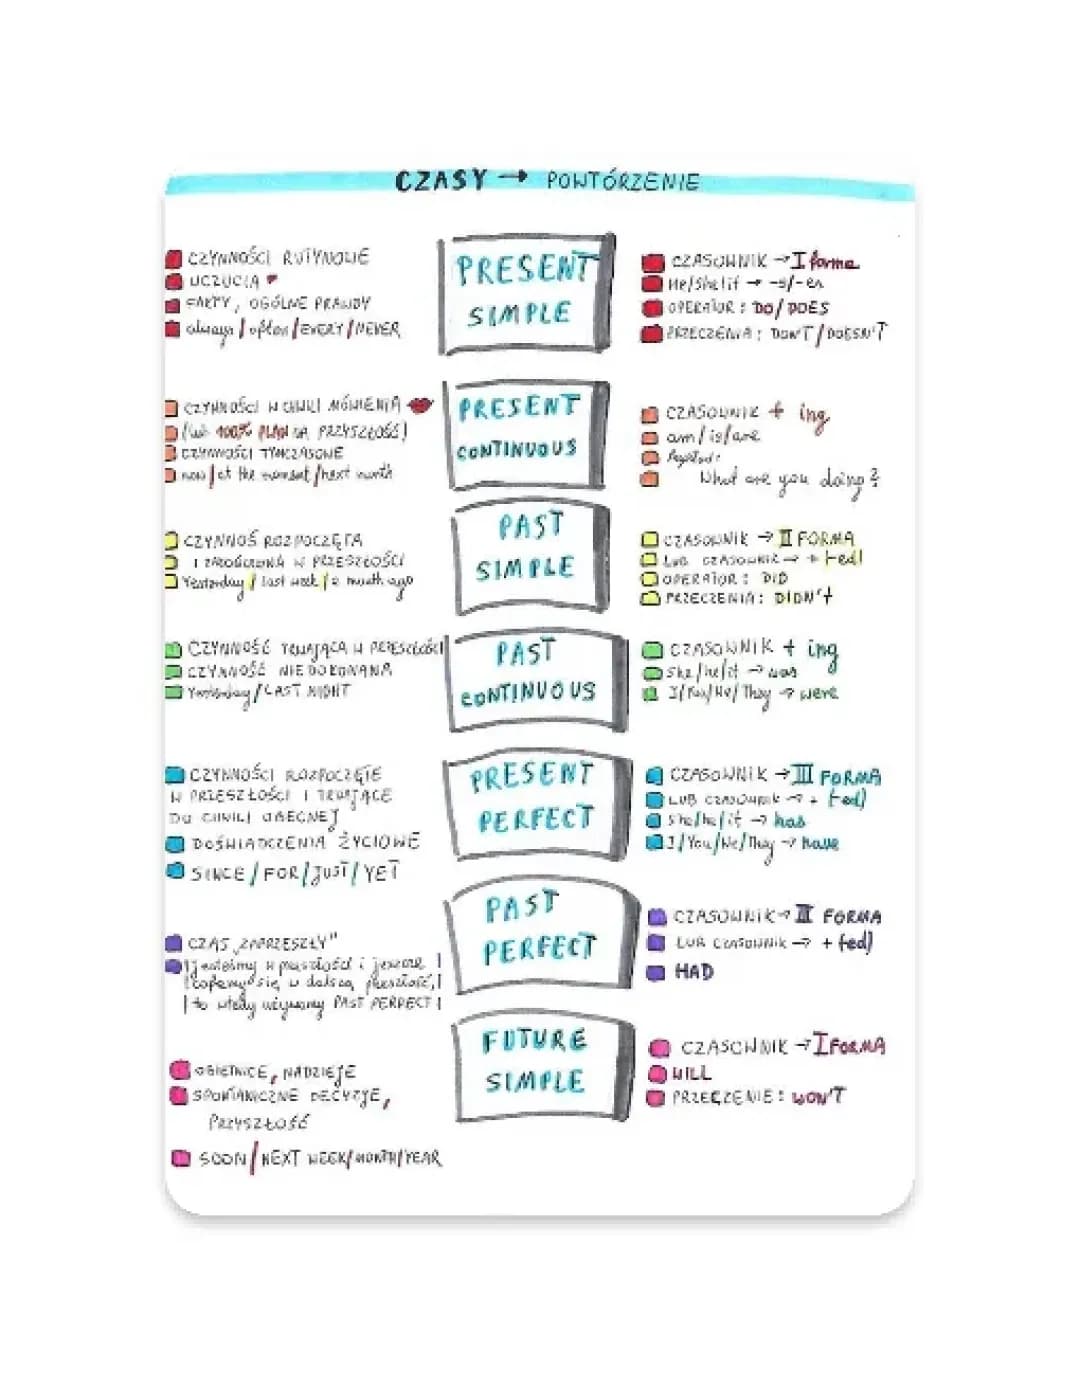 CZASY → POWTÓRZENIE
CZYNNOŚCI RUTYNOWE
UCZUCIA
FAKTY, OGÓLNE PRAWDY
always / often / EVERY / NEVER
PRESENT
SIMPLE
CZASOWNIK → I forma
He/she/it → -s/-es
OPERATOR: DO/DOES
PRZECZENIA: DON'T / DOESN'T
CZYNNOŚCI W CHWILI MÓWIENIA
(lub 100% PLAN NA PRZYSZŁOŚĆ)
CZYNNOŚCI TYMCZASOWE
now / at the moment / next month
PRESENT
CONTINUOUS
CZASOWNIK + ing
am / is / are
What are you doing?
CZYNNOŚ ROZPOCZĘTA
I ZAKOŃCZONA W PRZESZŁOŚCI
Yesterday / last week / a month ago
PAST
SIMPLE
CZASOWNIK → II FORMA
LUB CZASOWNIK → + (-ed)
OPERATOR: DID
PRZECZENIA: DIDN't
CZYNNOŚĆ TRWAJĄCA W PRZESZŁOŚCI
CZYNNOŚĆ NIEDOKONANA
Yesterday / LAST NIGHT
PAST
CONTINUOUS
CZASOWNIK + ing
She/he/it → was
I/You/We/They → were
CZYNNOŚCI ROZPOCZĘTE
W PRZESZŁOŚCI I TRWAJĄCE
DO CHWILI OBECNEJ
DOŚWIADCZENIA ŻYCIOWE
SINCE / FOR / JUST / YET
PRESENT
PERFECT
CZASOWNIK → III FORMA
LUB CZASOWNIK → + (-ed)
she/he/it → has
I/You/We/They → have
CZAS „ZAPRZESZŁY"
jesteśmy w przeszłości i jeszcze
cofamy się w dalszą przeszłość,
to wtedy używamy PAST PERFECT
PAST
PERFECT
CZASOWNIK → III FORMA
LUB CZASOWNIK → + (ed)
HAD
OBIETNICE, NADZIEJE
SPONTANICZNE DECYZJE,
PRZYSZŁOŚĆ
SOON / NEXT WEEK/MONTH/YEAR
FUTURE
SIMPLE
CZASOWNIK → I FORMA
WILL
PRZECZENIE: WON'T